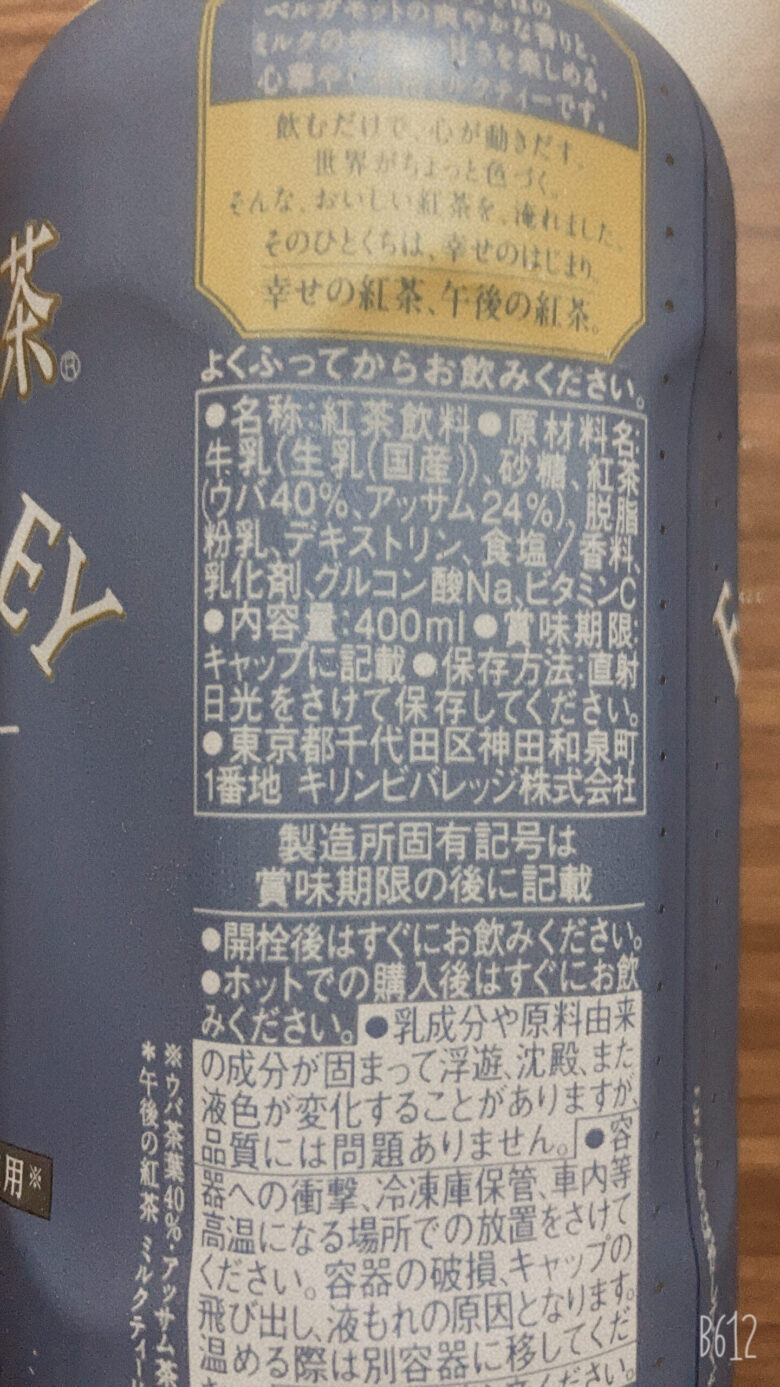 ベルガモットの爽やかな香りと、
心華やぐ
ルクティーです。
飲むだけで、心が動きだす。
世界がちょっと色づく。
そんな、おいしい紅茶を、淹れました。
そのひとくちは、幸せのはじまり。
幸せの紅茶、午後の紅茶。
茶®
EY
よくふってからお飲みください。
●名称:紅茶飲料●原材料名:
牛乳(生乳(国産))、砂糖、紅茶
(ウバ40%、アッサム24%)、脱脂
粉乳、デキストリン、食塩/香料、
乳化剤、グルコン酸Na、ビタミンC
●内容量:400ml●賞味期限:
キャップに記載●保存方法:直射
日光をさけて保存してください。
●東京都千代田区神田和泉町
1番地 キリンビバレッジ株式会社
製造所固有記号は
賞味期限の後に記載
●開栓後はすぐにお飲みください。
●ホットでの購入後はすぐにお飲
みください。●乳成分や原料由来
の成分が固まって浮遊、沈殿、また
液色が変化することがありますが、
品質には問題ありません。●容
器への衝撃、冷凍庫保管、車内等
高温になる場所での放置をさけて
ください。容器の破損、キャップの
飛び出し、液もれの原因となります。
温める際は別容器に移してくだ
用※
※ウバ茶葉40%・アッサム茶
*午後の紅茶 ミルクティー
B612